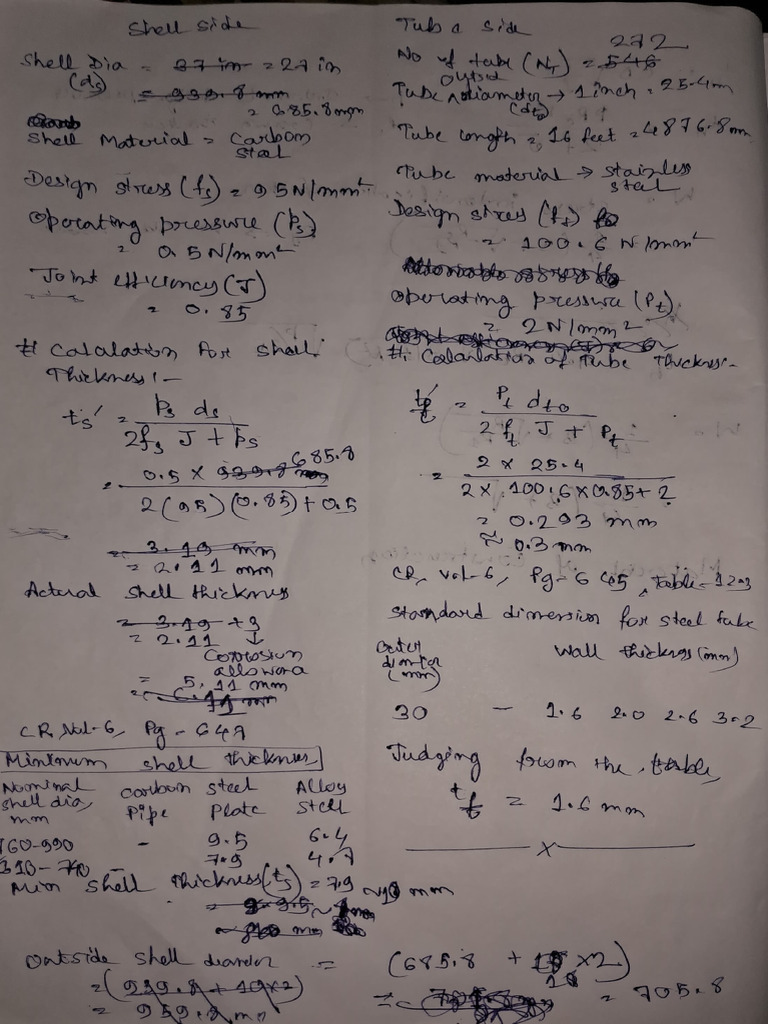 Shell side
Shell Dia = 37 in = 27 in
(ds)
= 939.8 mm
= 685.8 mm
Shell Material = Carbon
steel
Design stress (fs) = 95 N/mm²
Operating pressure (Ps)
= 0.5 N/mm²
Joint efficiency (J)
= 0.85
# Calculation for shell
Thickness :-
ts' = Ps ds / 2fs J + Ps
= 0.5 × 939.8 685.8 / 2(95)(0.85) + 0.5
= 3.19 mm
= 2.11 mm
Actual shell thickness
= 3.19 + 3
= 2.11 ↓
Corrosion
allowance
= 5.11 mm
CR, Vol-6, Pg - 647
Minimum shell thickness
Nominal shell dia, mm Carbon steel Alloy steel
Pipe Plate
760-990 - 9.5 6.4
310-740 - 7.9 4.7
Min shell thickness (ts) = 7.9 ~ 10 mm
Outside shell diameter = (685.8 + 10 × 2)
= (939.8 + 10×2) = 705.8
= 959.8 mm
Tube side
No of tube (NT) = 546 272
Tube outside diameter → 1 inch = 25.4 mm
(dto)
Tube length = 16 feet = 4876.8 mm
Tube material → stainless
steel
Design stress (ft)
= 100.6 N/mm²
Operating pressure (Pt)
= 2 N/mm²
#. Calculation of Tube Thickness:-
tt' = Pt dto / 2 ft J + Pt
= 2 × 25.4 / 2 × 100.6 × 0.85 + 2
= 0.293 mm
≈ 0.3 mm
CR, Vol-6, Pg - 645, Table - 12.3
standard dimension for steel tube
Outer diameter (mm) Wall thickness (mm)
30 - 1.6 2.0 2.6 3.2
Judging from the table,
tt = 1.6 mm
x